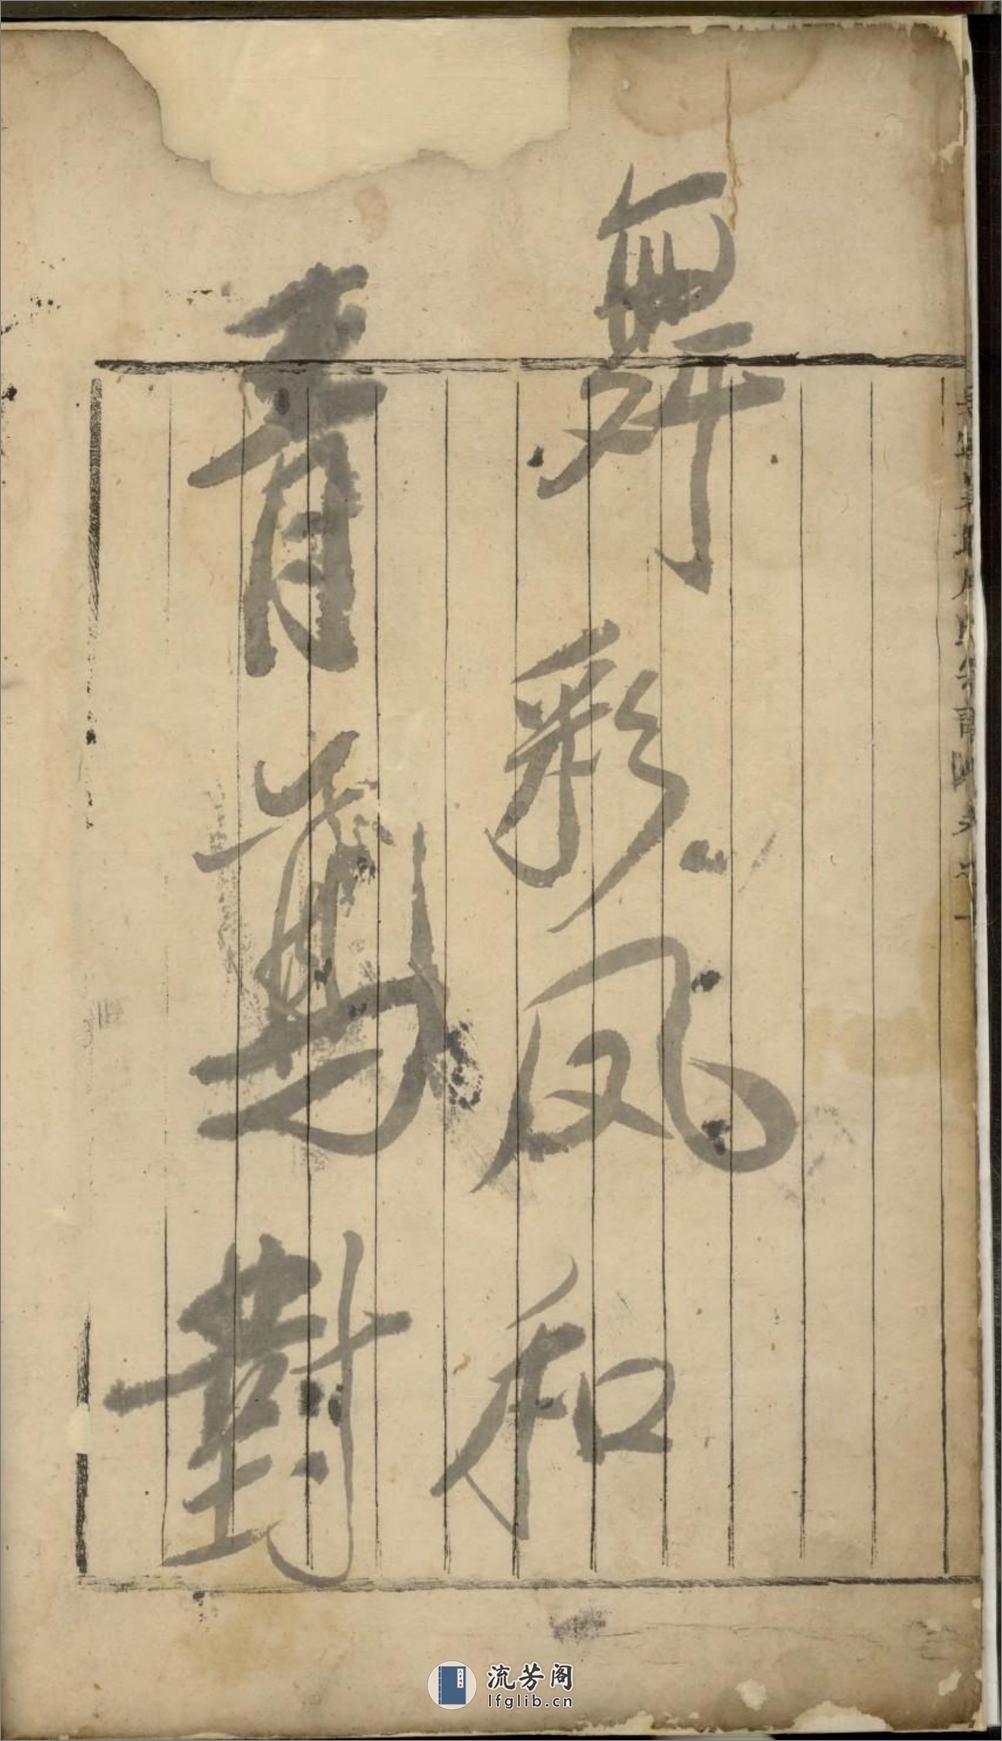 舞彩凤和
青鸞對
流芳阁
lfglib.cn